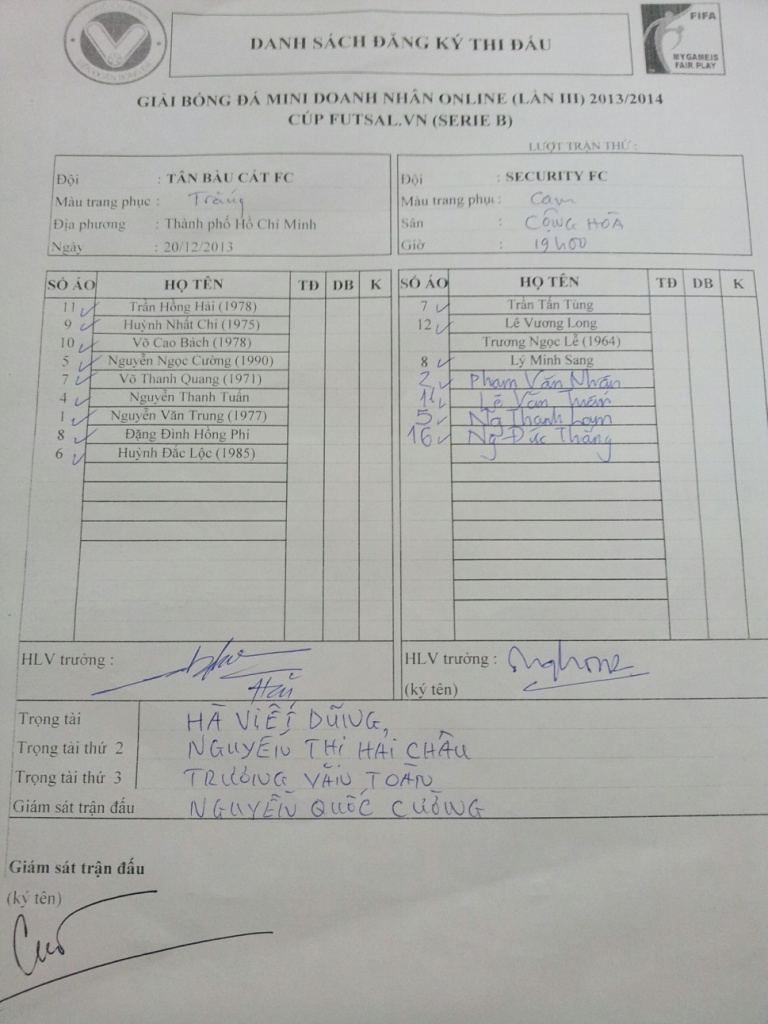 DANH SÁCH ĐĂNG KÝ THI ĐẤU
FIFA
MY GAME IS
FAIR PLAY
GIẢI BÓNG ĐÁ MINI DOANH NHÂN ONLINE (LẦN III) 2013/2014
CÚP FUTSAL.VN (SERIE B)
LƯỢT TRẬN THỨ :
Đội : TÂN BÀU CÁT FC
Màu trang phục : Trắng
Địa phương : Thành phố Hồ Chí Minh
Ngày : 20/12/2013
Đội : SECURITY FC
Màu trang phục : Cam
Sân : CỘNG HÒA
Giờ : 19h00
SỐ ÁO HỌ TÊN TĐ DB K
11 Trần Hồng Hải (1978)
9 Huỳnh Nhất Chi (1975)
10 Võ Cao Bách (1978)
5 Nguyễn Ngọc Cường (1990)
7 Võ Thanh Quang (1971)
4 Nguyễn Thanh Tuấn
1 Nguyễn Văn Trung (1977)
8 Đặng Đình Hồng Phi
6 Huỳnh Đắc Lộc (1985)
SỐ ÁO HỌ TÊN TĐ DB K
7 Trần Tấn Tùng
12 Lê Vương Long
Trương Ngọc Lễ (1964)
8 Lý Minh Sang
2 Phạm Văn Nhân
11 Lê Văn Tuấn
5 Ng Thanh Lam
16 Ng Đức Thắng
HLV trưởng :
Hải
HLV trưởng :
(ký tên)
Trọng tài HÀ VIẾT DŨNG,
Trọng tài thứ 2 NGUYỄN THỊ HẢI CHÂU
Trọng tài thứ 3 TRƯƠNG VĂN TOÀN
Giám sát trận đấu NGUYỄN QUỐC CƯỜNG
Giám sát trận đấu
(ký tên)